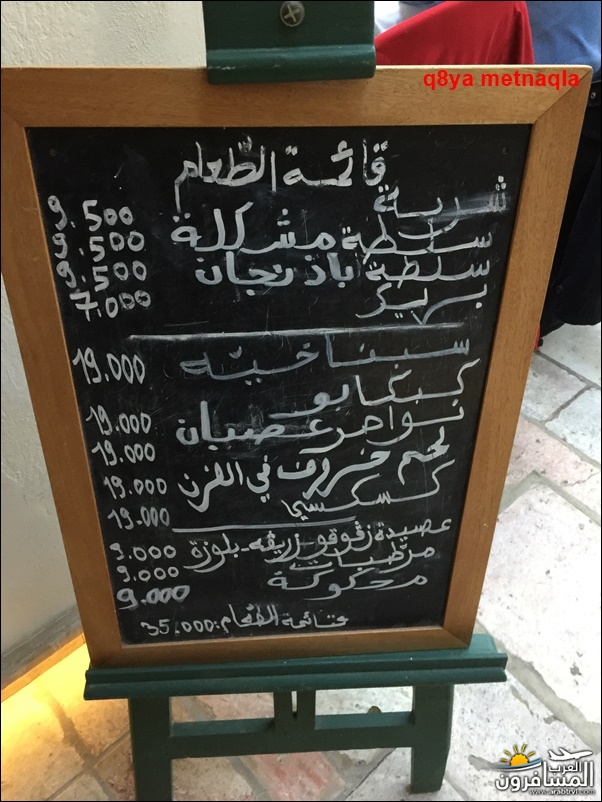 q8ya metnaqla
قائمة الطّعام
شربة 9.500
سلطة مشكلة 9.500
سلطة باذنجان 9.500
7.000
سبناخيّه 19.000
كبكابو 19.000
نواصر عصبان 19.000
لحم خروف في الفرن 19.000
كسكسي 19.000
عصيدة زقوقو زريقه - بلوزة 9.000
مرطبات 9.000
محكوكة 9.000
قائمة الطعام: 35.000
العرب
المسافرون
www.arabtrvl.com